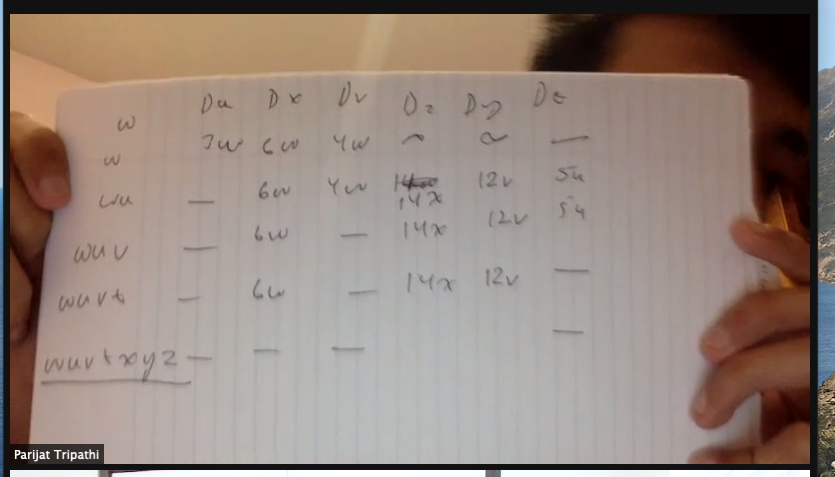 Du Dx Dv Dz Dy Dt
w
w 3w 6w 4w ~ ~ —
wu — 6w 4w 14x 12v 5u
wuv — 6w — 14x 12v 5u
wuvt — 6w — 14x 12v —
wuvtxyz — — — —
Parijat Tripathi